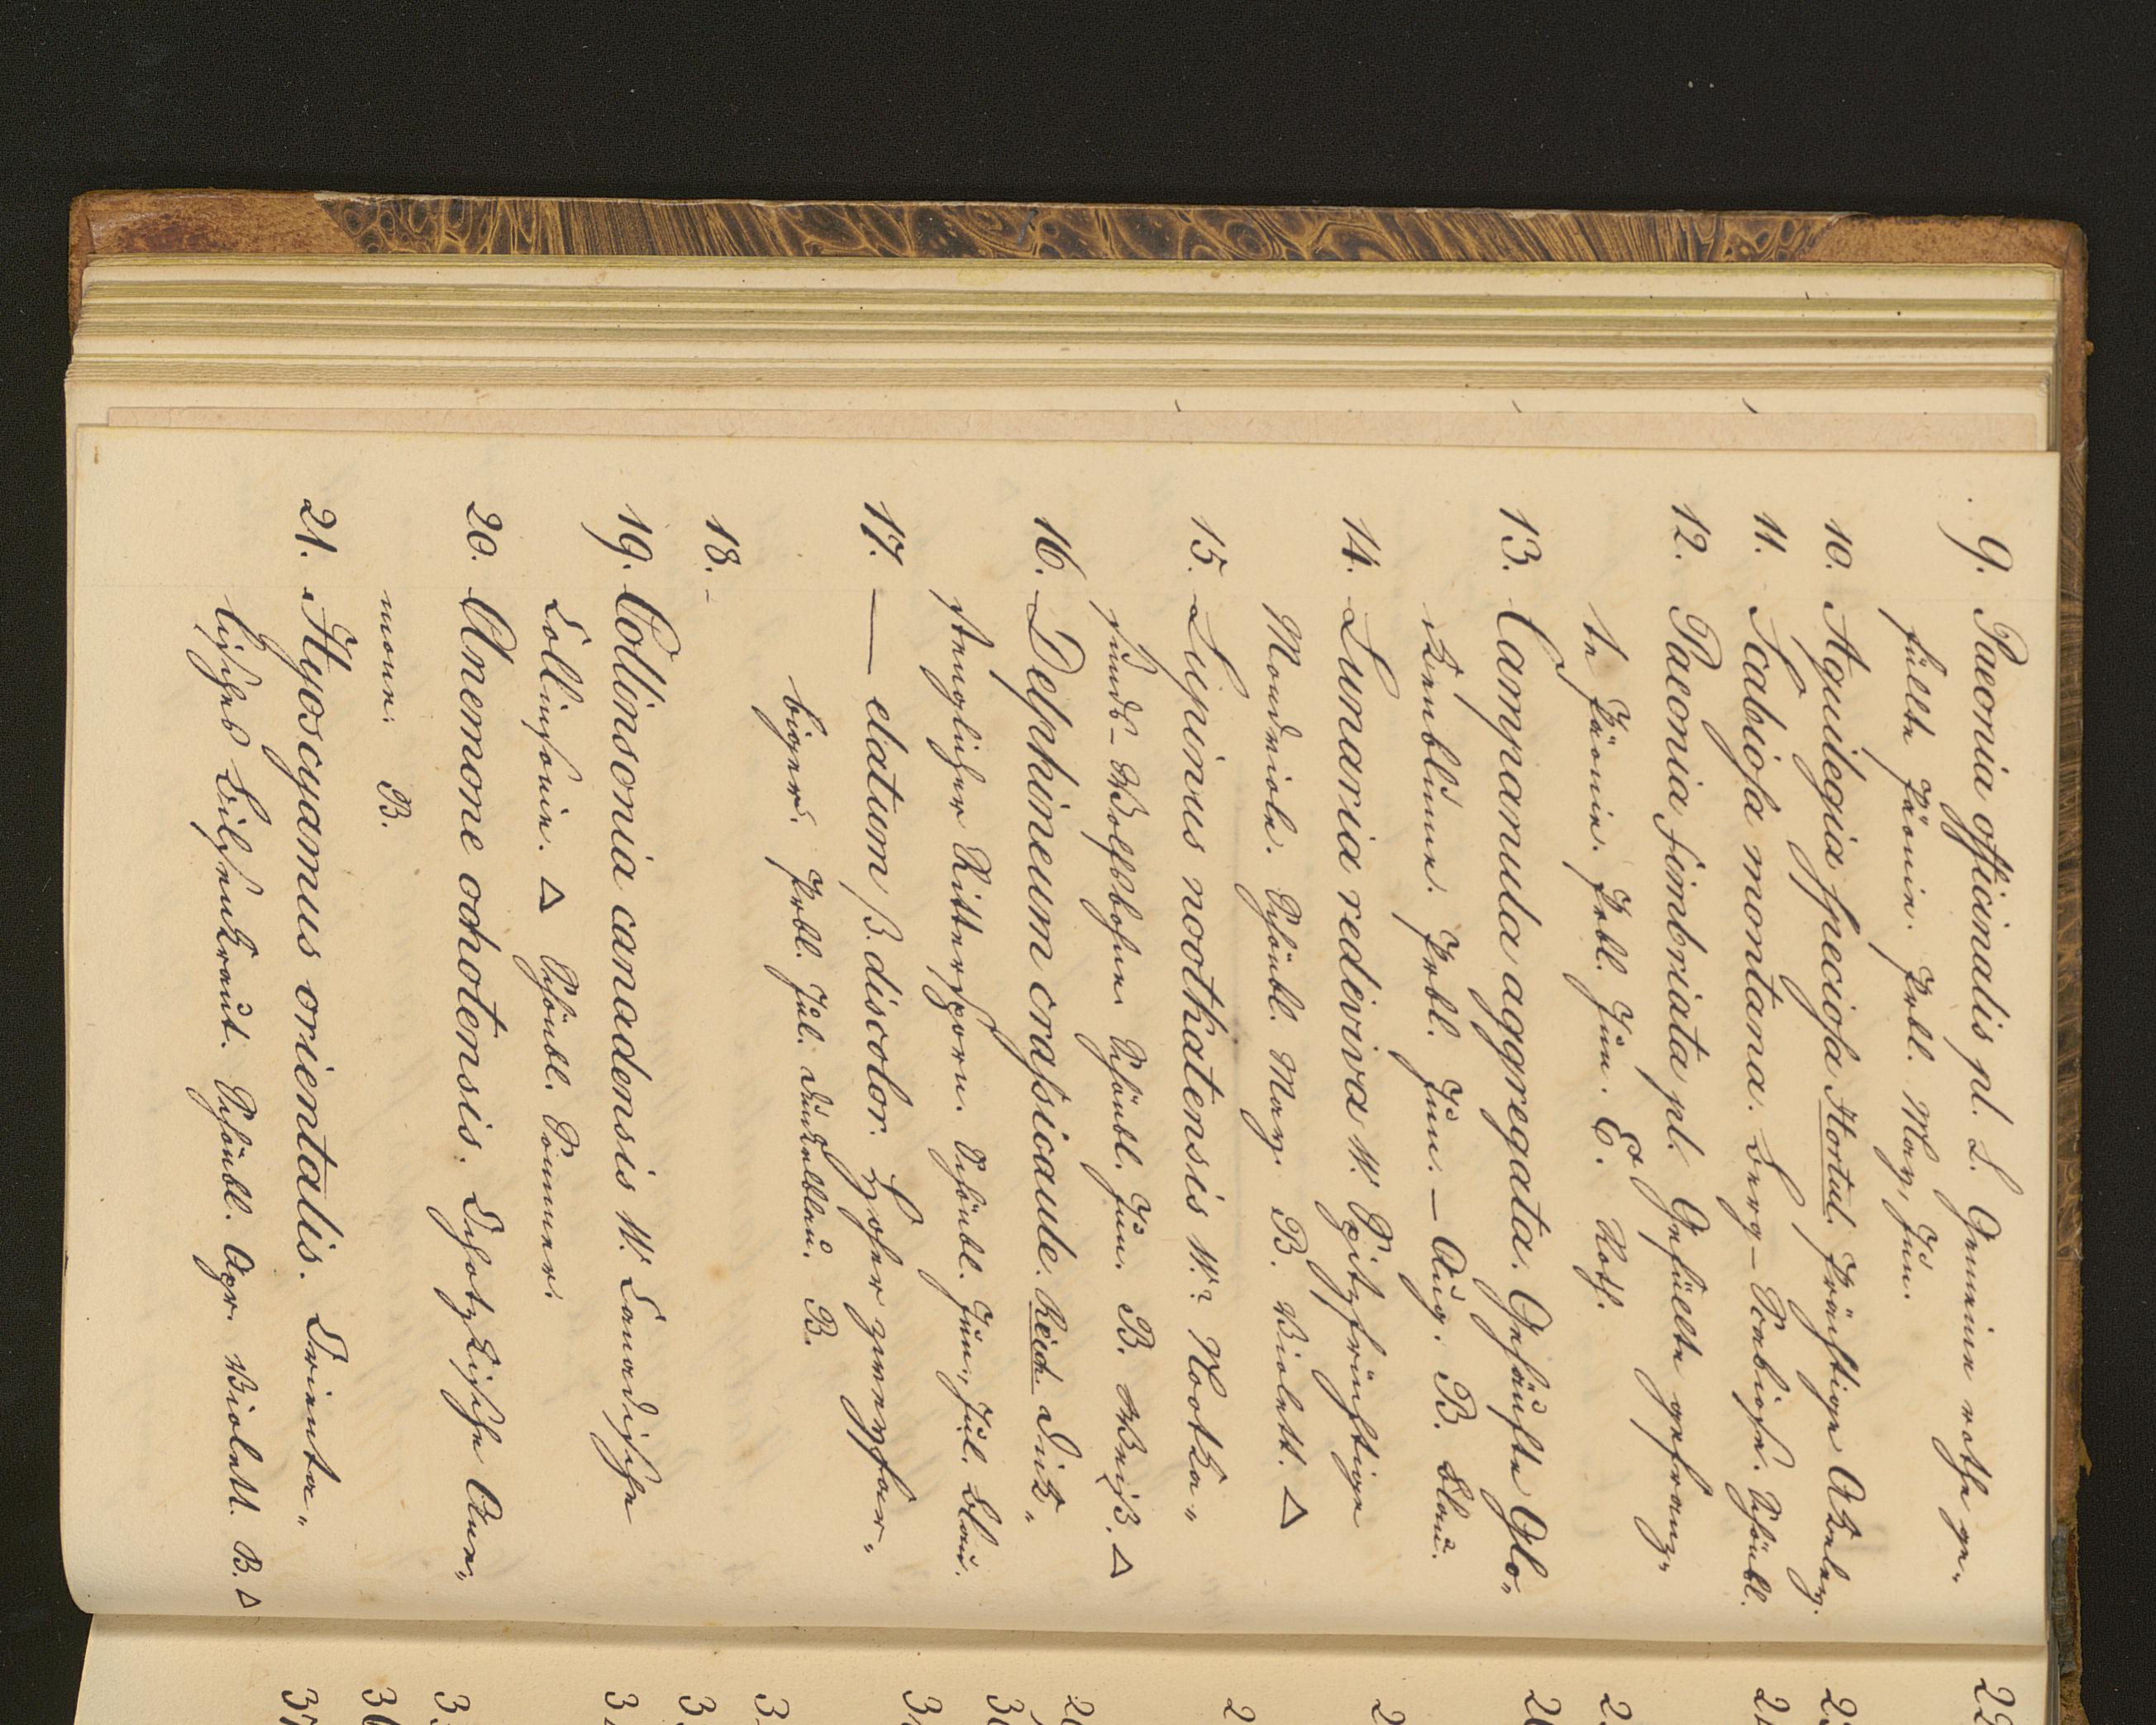 9. Paeonia officinalis pl. L. Gemeine rothe ge„
füllte Päonie. Prbl. May, Jun.
10. Aquilegia speciosa Hortul. Prächtige Akeley.
11. Scabiosa montana. Berg-Skabiose. Schönbl.
12. Paeonia fimbriata pl. Gefüllte gefranz„
te Päonie. Prbl. Jun. E. Roth.
13. Campanula aggregata. Gehäufte Glo„
kenblume. Prbl. Jun. – Aug. B. Blau.
14. Lunaria rediviva W. Spitzfrüchtige
Mondviole. Schönbl. May. B. Violett. △
15. Lupinus nootkatensis W. Nootka„
sunds-Wolfsbohne Schönbl. Jun. B. Weiß. △
16. Delphineum crassicaule. Reich. Dik„
stenglicher Rittersporn. Schönbl. Jun, Jul. Blau.
17. — elatum β. discolor. Hoher zweyfar„
biger. Prbl. Jul. Dunkelblau. B.
18. -
19. Collinsonia canadensis W. Canadische
Collinsonie. △ Schönbl. Sommer.
20. Anemone ochotensis. Ochotzkische Ane„
mone. B.
21. Hyoscyamus orientalis. Orienta„
lisches Bilsenkraut. Schönbl. Apr. Violett. B. △
22
2
2
2
2
2
2
3
3
3
3
3
36
37